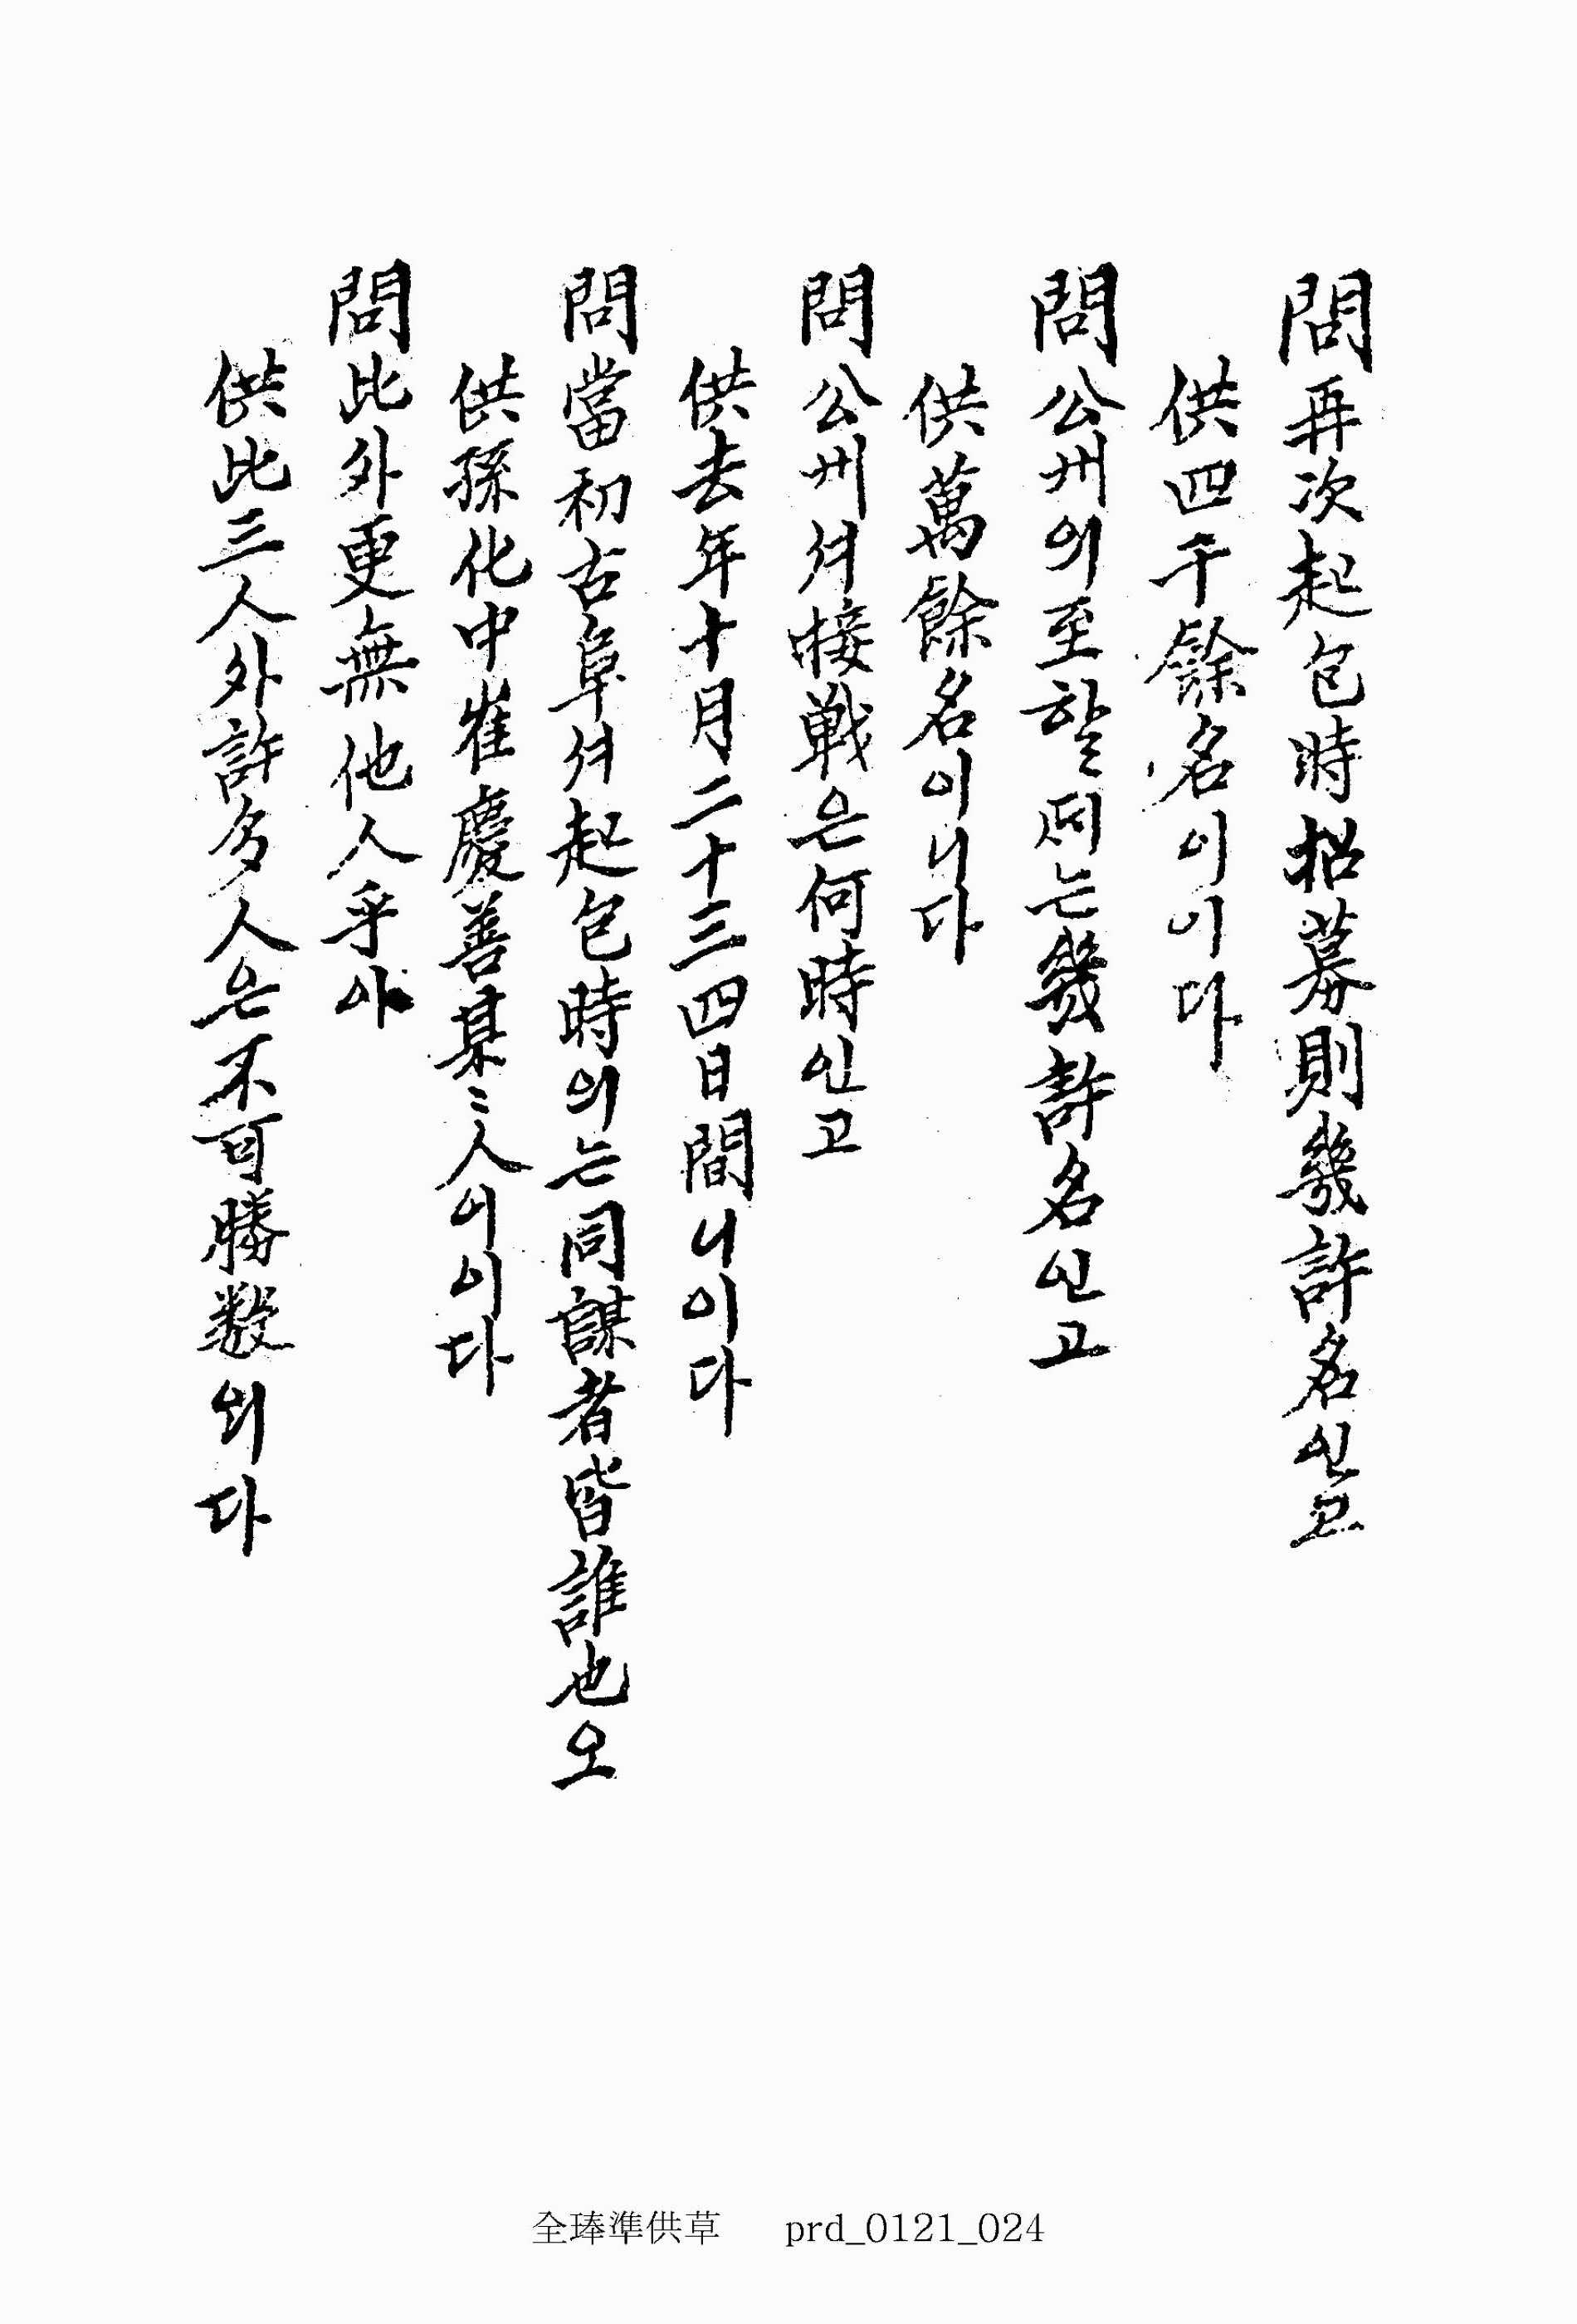 問再次起包時招募則幾許名인고
供四千餘名이이다
問公州의至할띠는幾許名인고
供萬餘名이니다
問公州셔接戰은何時인고
供去年十月二十三四日間니이다
問當初古阜셔起包時의는同謀者皆誰也오
供孫化中崔慶善某〻人이이다
問此外更無他人乎아
供此三人外許多人은不可勝數외다
全琫準供草 prd_0121_024